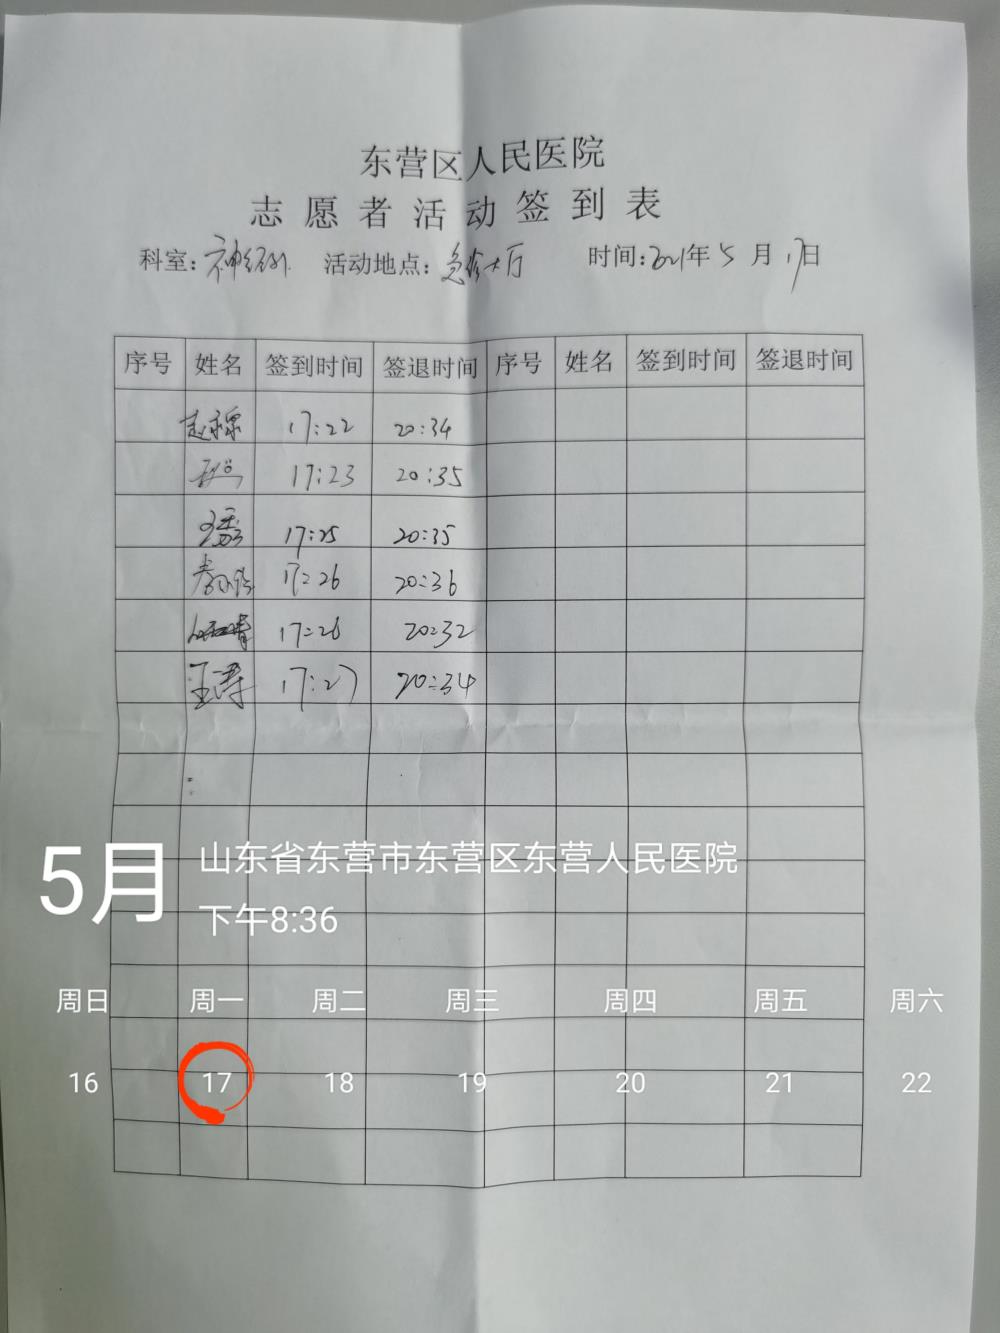 东营区人民医院
志愿者活动签到表
科室:神经外 活动地点:急诊大厅 时间:2021年5月17日
序号 姓名 签到时间 签退时间 序号 姓名 签到时间 签退时间
17:22 20:34
17:23 20:35
17:25 20:35
17:26 20:36
17:26 20:32
王涛 17:27 20:34
5月
山东省东营市东营区东营人民医院
下午8:36
周日 周一 周二 周三 周四 周五 周六
16 17 18 19 20 21 22